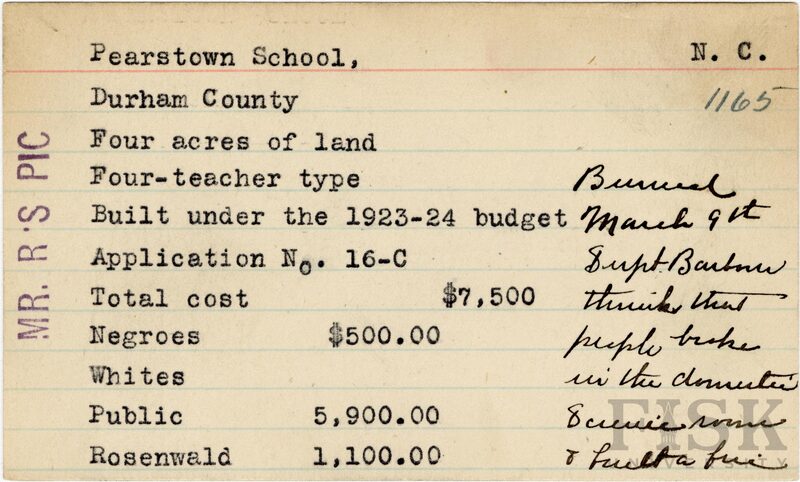 Pearstown School, N. C.
Durham County 1165
Four acres of land
Four-teacher type
Built under the 1923-24 budget
Application No. 16-C
Total cost $7,500
Negroes $500.00
Whites
Public 5,900.00
Rosenwald 1,100.00
Burned
March 9th
Supt Barbour
thinks that
people broke
in the domestic
Science room
& built a fire
MR. R'S PIC
FISK
UNIVERSITY